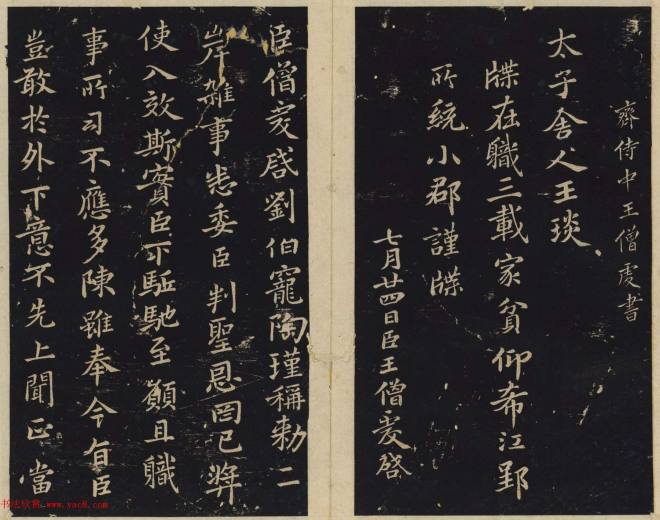 齊侍中王僧虔書
太子舍人王琰
牒在職三載家貧仰希江郢
所統小郡謹牒
七月廿四日臣王僧虔啓
臣僧虔啓劉伯寵陶瑾稱勅二
岸雜事悉委臣判聖恩罔已獎
使入效斯實臣下駈馳至願且職
事所司不應多陳雖奉今旨臣
豈敢於外下意不先上聞正當
书法欣赏 www.yac8.com